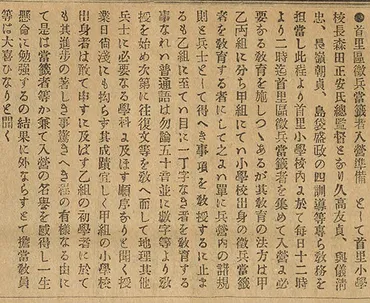 ◎首里區徴兵當籤者入營準備　として首里小學
校長森田正安氏總監督となり久高友貞、與儀清
忠、長嶺朝貞、島袋盛政の四訓導等專ら敎務を
担當し此程より首里小學校内よ於て毎日十二時
より二時迄首里區徴兵當籤者を集めて入營よ必
要なる敎育を施しつゝあるが其敎育の方法は甲
乙兩組に分ち甲組にてハ小學校出身の徴兵當籤
者を敎育するにすてよよハ單に兵營内の諸規
則と兵士として得へき事項を敎授するに止ま
るも乙組に至てハ目に一丁字なき者を敎育する
事なれハ普通語は勿論五十音並に數字等より敎
授を始め次第に往復文等を敎へ而して地理其他
兵士に必要なる學科よ及ほす順序なりと聞く授
業日尚淺にも拘らす其成蹟宜しく甲組の小學校
出身者は敢て申すに及ばす乙組の初學者に於て
も其進歩の著しき事驚きへき程の有樣なる由に
て是は當籤者等か兼て入營の名譽を感得し一生
懸命に勉強するの結果に外ならすとて擔當敎員
等は大喜ひなりと聞く